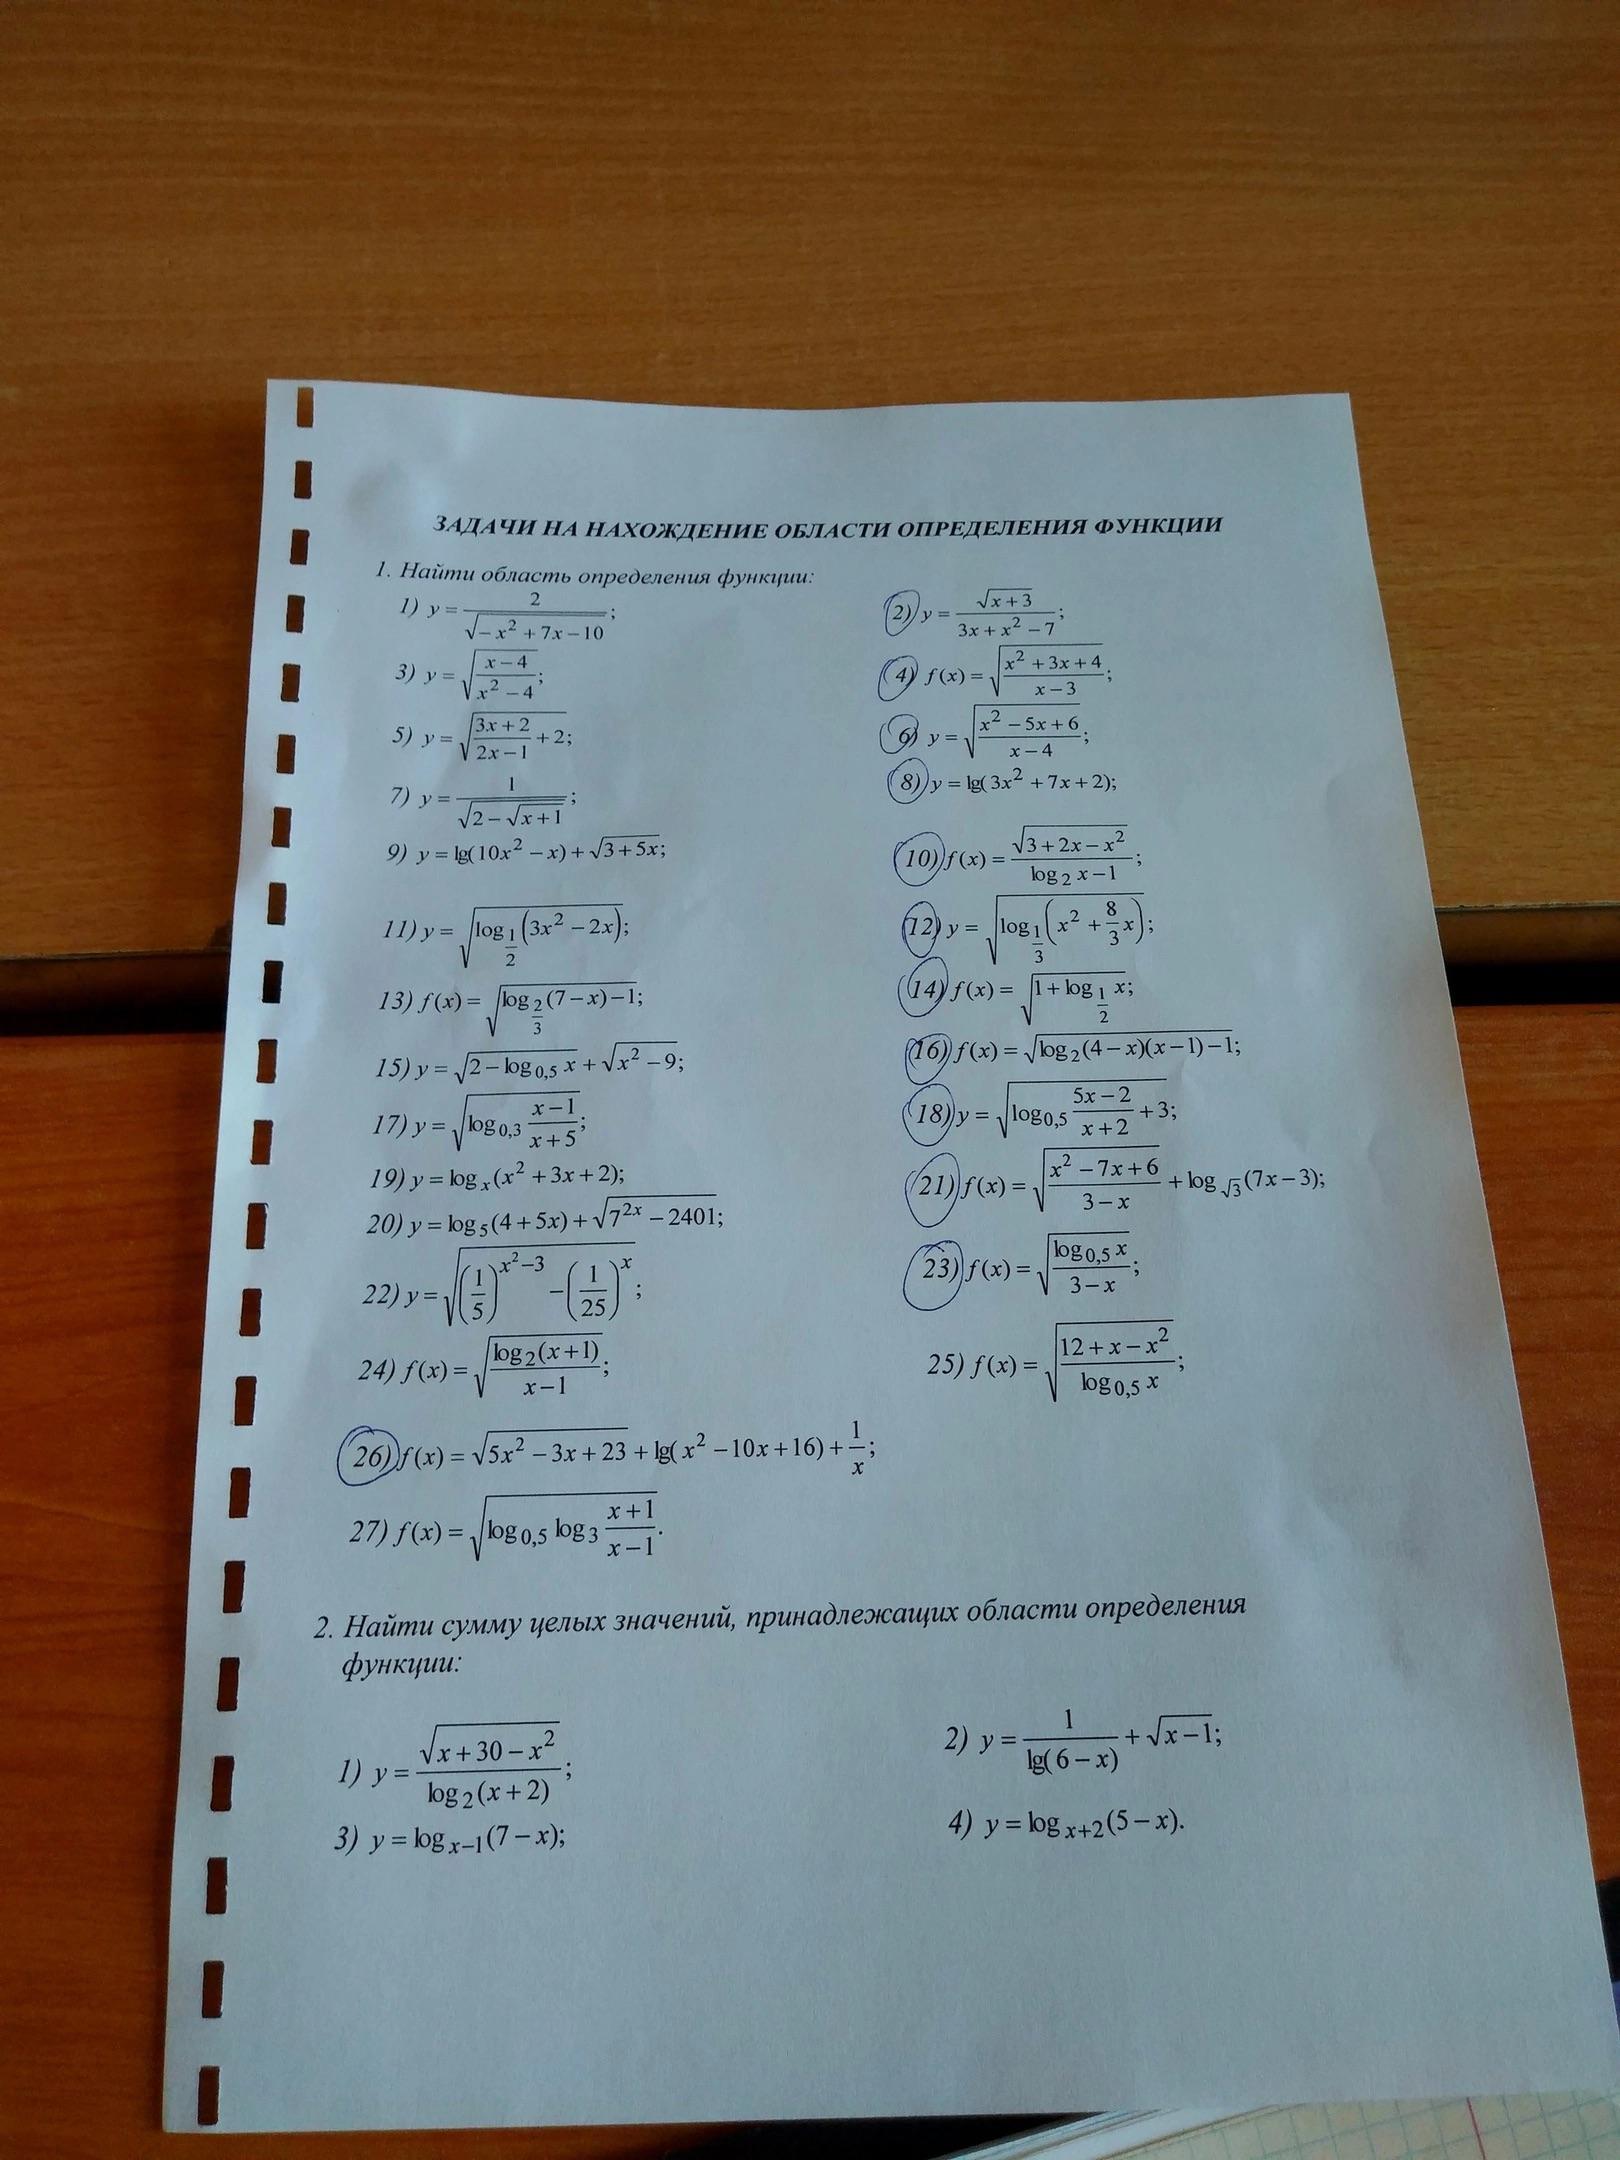 ЗАДАЧИ НА НАХОЖДЕНИЕ ОБЛАСТИ ОПРЕДЕЛЕНИЯ ФУНКЦИИ
1. Найти область определения функции:
1) y = 2/√(−x² + 7x − 10);
2) y = √(x + 3)/(3x + x² − 7);
3) y = √((x − 4)/(x² − 4));
4) f(x) = √((x² + 3x + 4)/(x − 3));
5) y = √((3x + 2)/(2x − 1) + 2);
6) y = √((x² − 5x + 6)/(x − 4));
7) y = 1/√(2 − √(x + 1));
8) y = lg(3x² + 7x + 2);
9) y = lg(10x² − x) + √(3 + 5x);
10) f(x) = √(3 + 2x − x²)/(log₂ x − 1);
11) y = √(log_{1/2}(3x² − 2x));
12) y = √(log_{1/3}(x² + 8/3 x));
13) f(x) = √(log_{2/3}(7 − x) − 1);
14) f(x) = √(1 + log_{1/2} x);
15) y = √(2 − log_{0,5} x) + √(x² − 9);
16) f(x) = √(log₂(4 − x)(x − 1) − 1);
17) y = √(log_{0,3} (x − 1)/(x + 5));
18) y = √(log_{0,5} (5x − 2)/(x + 2) + 3);
19) y = log_x(x² + 3x + 2);
20) y = log₅(4 + 5x) + √(7^{2x} − 2401);
21) f(x) = √((x² − 7x + 6)/(3 − x)) + log_{√3}(7x − 3);
22) y = √((1/5)^{x² − 3} − (1/25)^x);
23) f(x) = √(log_{0,5} x/(3 − x));
24) f(x) = √(log₂(x + 1)/(x − 1));
25) f(x) = √((12 + x − x²)/log_{0,5} x);
26) f(x) = √(5x² − 3x + 23) + lg(x² − 10x + 16) + 1/x;
27) f(x) = √(log_{0,5} log₃ (x + 1)/(x − 1)).
2. Найти сумму целых значений, принадлежащих области определения
функции:
1) y = √(x + 30 − x²)/log₂(x + 2);
2) y = 1/lg(6 − x) + √(x − 1);
3) y = log_{x−1}(7 − x);
4) y = log_{x+2}(5 − x).